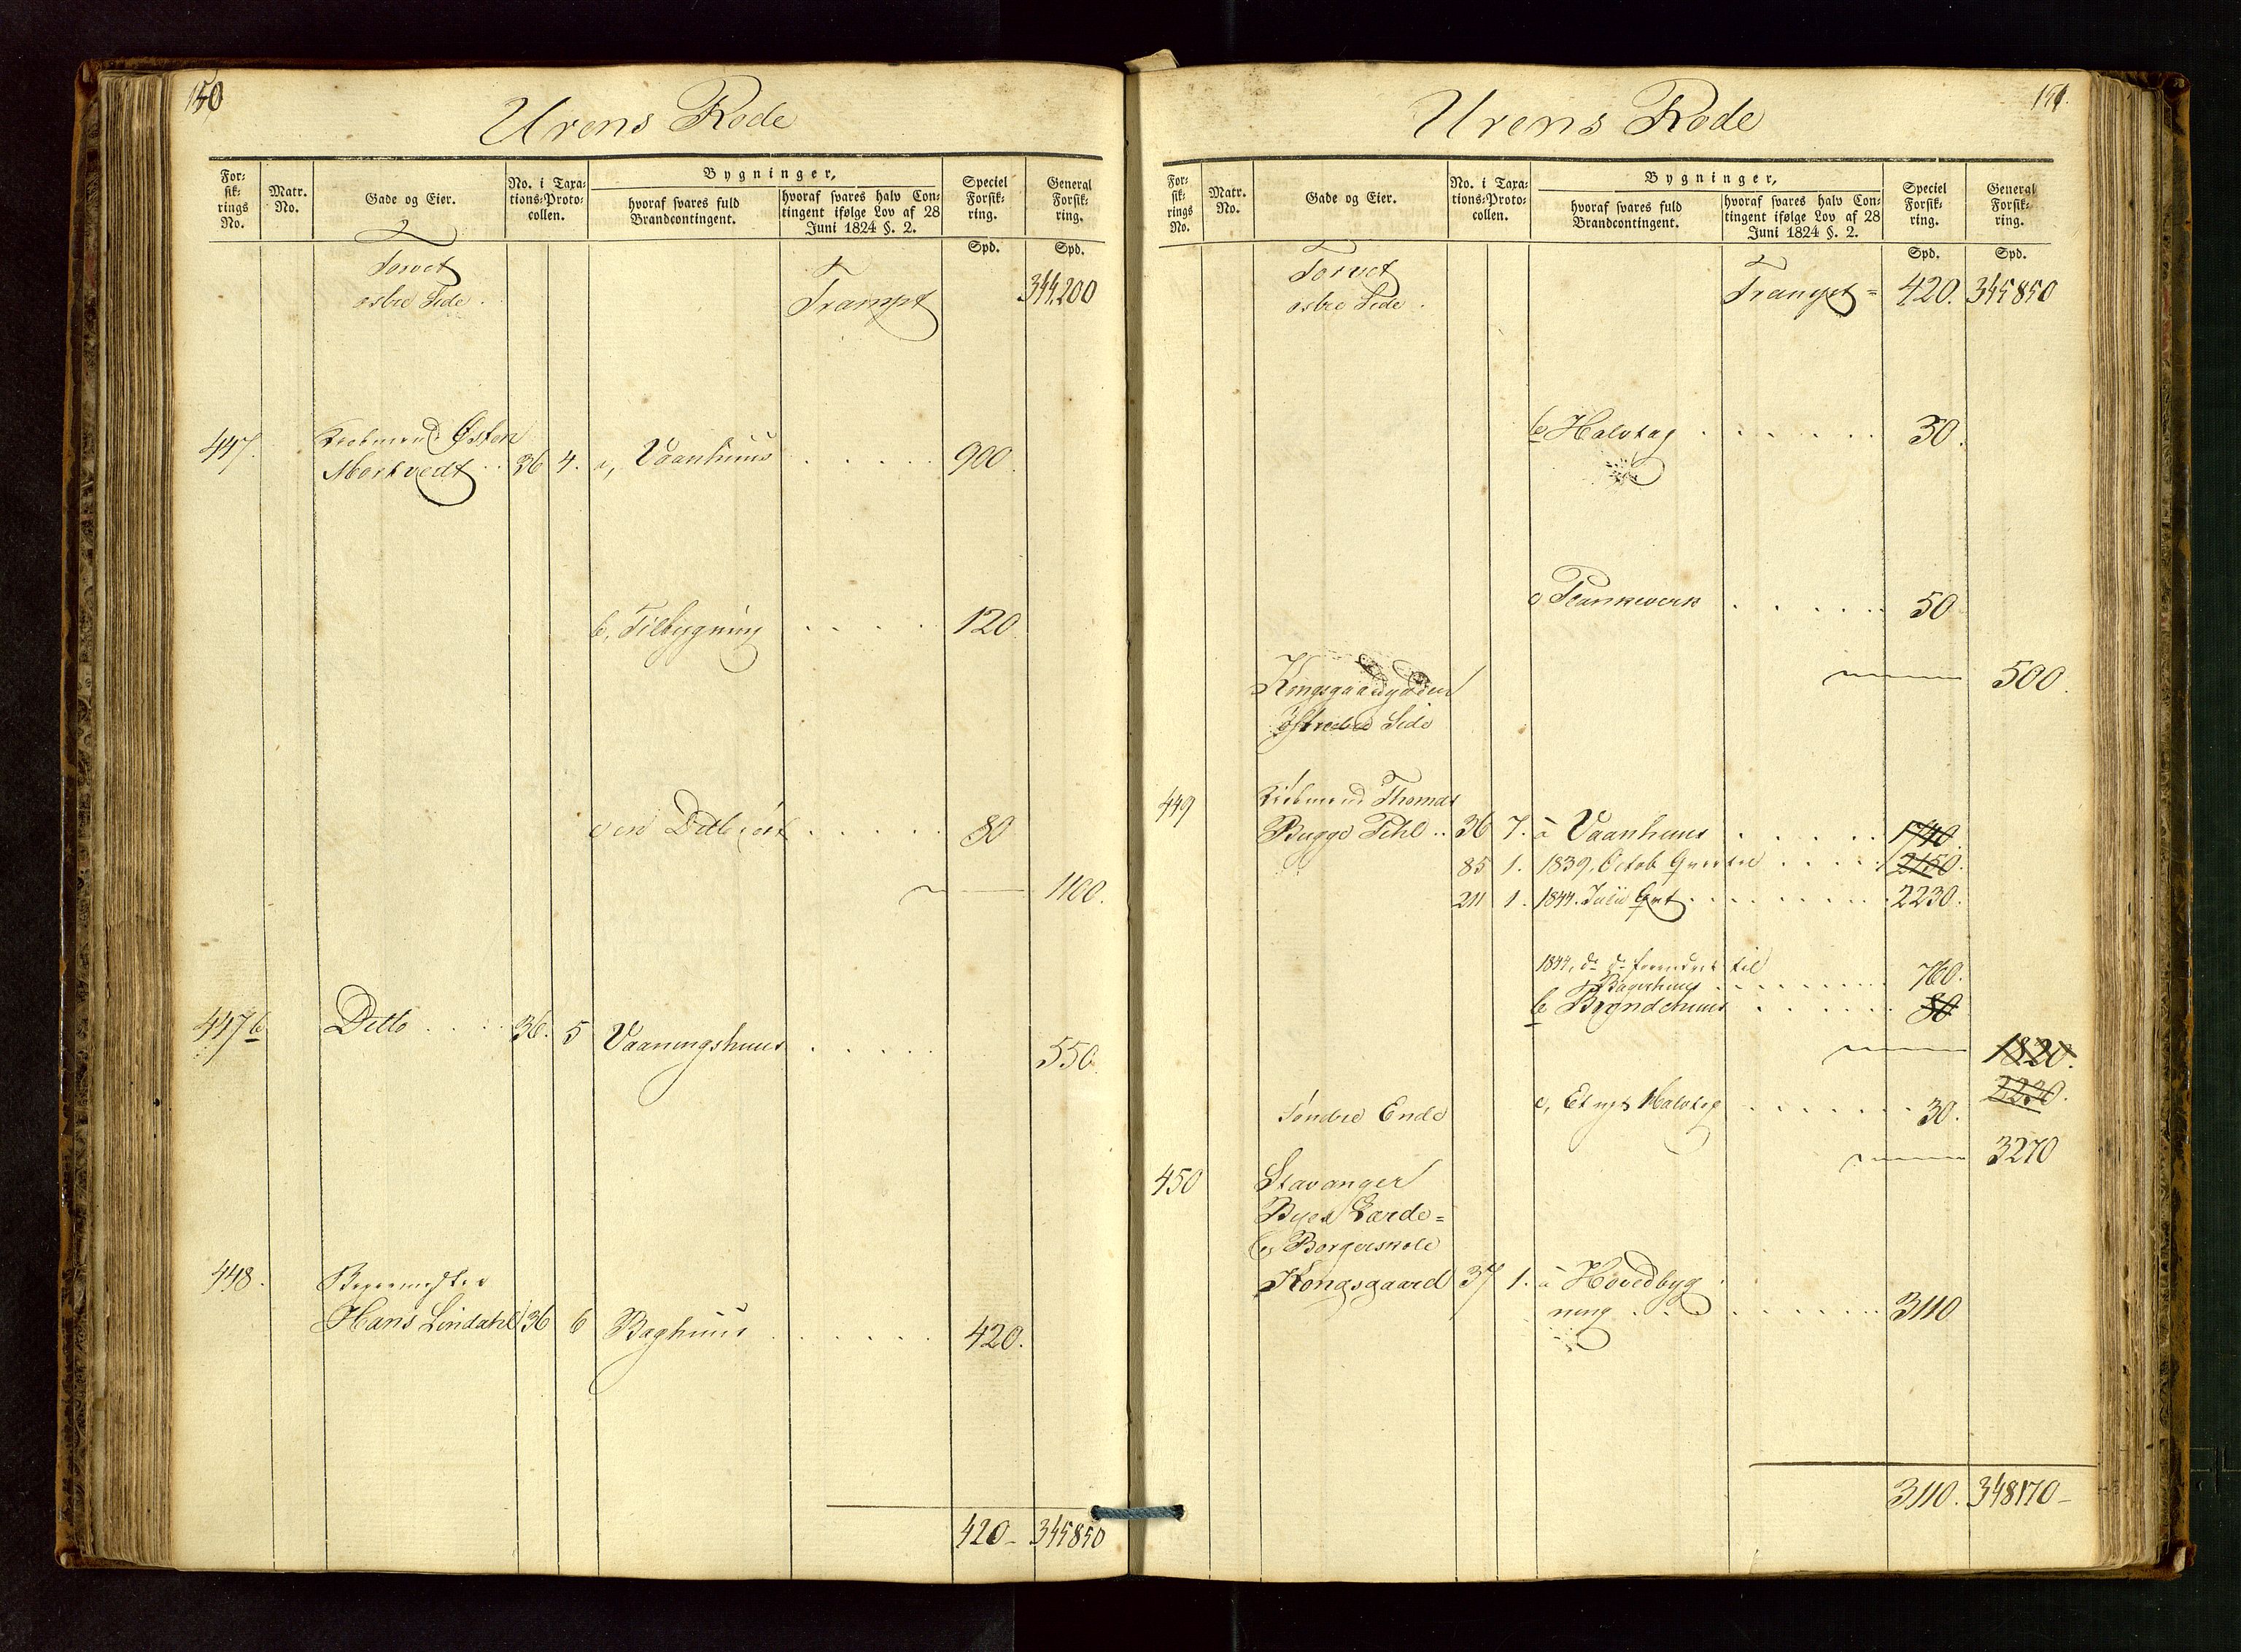 150
Urens Rode
For=
sik=
rings
No.
Matr.
No.
Gade og Eier.
No. i Taxa=
tions=Proto=
collen.
Bygninger,
hvoraf svares fuld
Brandcontingent.
hvoraf svares halv Con=
tingent ifølge Lov af 28
Juni 1824 §. 2.
Speciel
Forsik=
ring.
General
Forsik=
ring.
Spd. Spd.
Torvet
østre Side.
Transpt 344,200
447. Kiøbmand Østen
Mortvedt .. 36 4. a, Vaanhuus . . . . . 900.
b, Tilbygning . . . . 120.
c en Ditto i øst . . . . . 80
1100.
447 b Ditto . . . . 36. 5 Vaaningshuus . . . . . 550.
448. Bagermester
Hans Lindahl 36 6 Baghuus . . . . . . 420.
420 - 345850
151.
Urens Rode
For=
sik=
rings
No.
Matr.
No.
Gade og Eier.
No. i Taxa=
tions=Proto=
collen.
Bygninger,
hvoraf svares fuld
Brandcontingent.
hvoraf svares halv Con=
tingent ifølge Lov af 28
Juni 1824 §. 2.
Speciel
Forsik=
ring.
General
Forsik=
ring.
Spd. Spd.
Torvet
østre Side.
Transpt = 420. 345850
b Halvtag . . . . . . 30.
c Plankeværk . . . . . . 50
500.
Kongsgaardgaden
østre Side
449 Kiøbmand Thomas
Bugge Pihl .. 36 7. a Vaanhuus . . . . . 1740.
85 1. 1839. Octob . . . . . 2150.
211 1. 1844. Julii . . . . . . . . 2230.
1844, do do forandret til
Bagerhuus . . . . . . . . 760.
b Brøndehuus . . . . . . 80
1820.
2230.
Søndre Ende c, Et nyt Halvtag . . . . . . 30.
3270
450 Stavanger
Byes Lærde=
og Borgerskole
Kongsgaard 37 1. a Hovedbyg
ning . . . . . . . . . 3110
3110. 348170 -